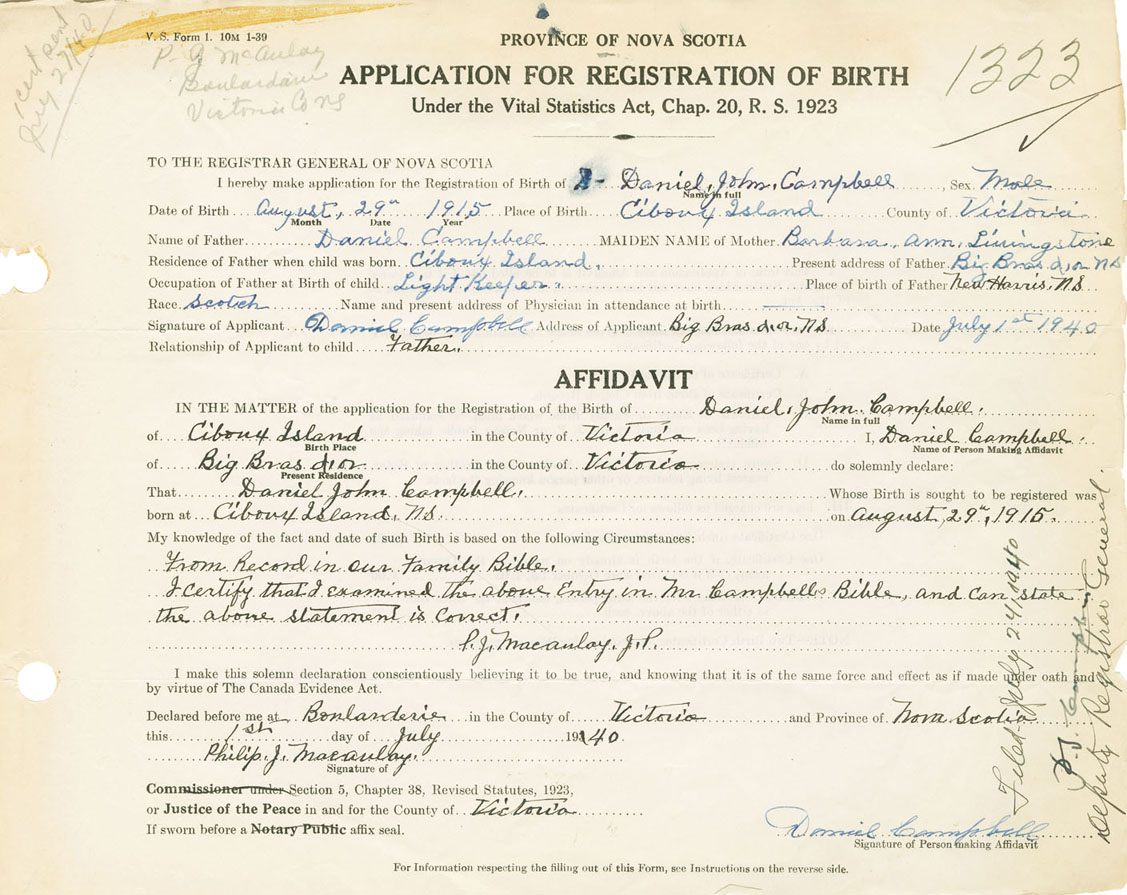 V. S. Form 1. 10M 1-39
PROVINCE OF NOVA SCOTIA
1 cert sent
July 27/40
P. J. McAulay
Boulardarie
Victoria Co NS
1323
APPLICATION FOR REGISTRATION OF BIRTH
Under the Vital Statistics Act, Chap. 20, R. S. 1923
TO THE REGISTRAR GENERAL OF NOVA SCOTIA
I hereby make application for the Registration of Birth of Daniel, John, Campbell Sex Male
Name in full
Date of Birth August, 29th 1915 Place of Birth Ciboux Island County of Victoria
Month Date Year
Name of Father Daniel Campbell MAIDEN NAME of Mother Barbara, Ann, Livingstone
Residence of Father when child was born Ciboux Island, Present address of Father Big Bras d'or NS
Occupation of Father at Birth of child Light Keeper. Place of birth of Father New Harris, NS
Race Scotch Name and present address of Physician in attendance at birth
Signature of Applicant Daniel Campbell Address of Applicant Big Bras d'or, NS Date July 1st 1940
Relationship of Applicant to child Father.
AFFIDAVIT
IN THE MATTER of the application for the Registration of the Birth of Daniel, John. Campbell.
Name in full
of Ciboux Island in the County of Victoria I, Daniel Campbell.
Birth Place Name of Person Making Affidavit
of Big Bras d'or in the County of Victoria do solemnly declare:
Present Residence
That Daniel John Campbell. Whose Birth is sought to be registered was
born at Ciboux Island, NS. on August, 29th, 1915.
My knowledge of the fact and date of such Birth is based on the following Circumstances:
From Record in our Family Bible.
I certify that I examined the above Entry in Mr Campbells Bible, and can state
the above statement is Correct.
P. J. Macaulay. J. P.
I make this solemn declaration conscientiously believing it to be true, and knowing that it is of the same force and effect as if made under oath and
by virtue of The Canada Evidence Act.
Declared before me at Boularderie in the County of Victoria and Province of Nova Scotia
this 1st day of July 1940.
Philip. J. Macaulay.
Signature of
Commissioner under Section 5, Chapter 38, Revised Statutes, 1923,
or Justice of the Peace in and for the County of Victoria
If sworn before a Notary Public affix seal.
Daniel Campbell
Signature of Person making Affidavit
For Information respecting the filling out of this Form, see Instructions on the reverse side.
Filed July 24, 1940
Deputy Registrar General.